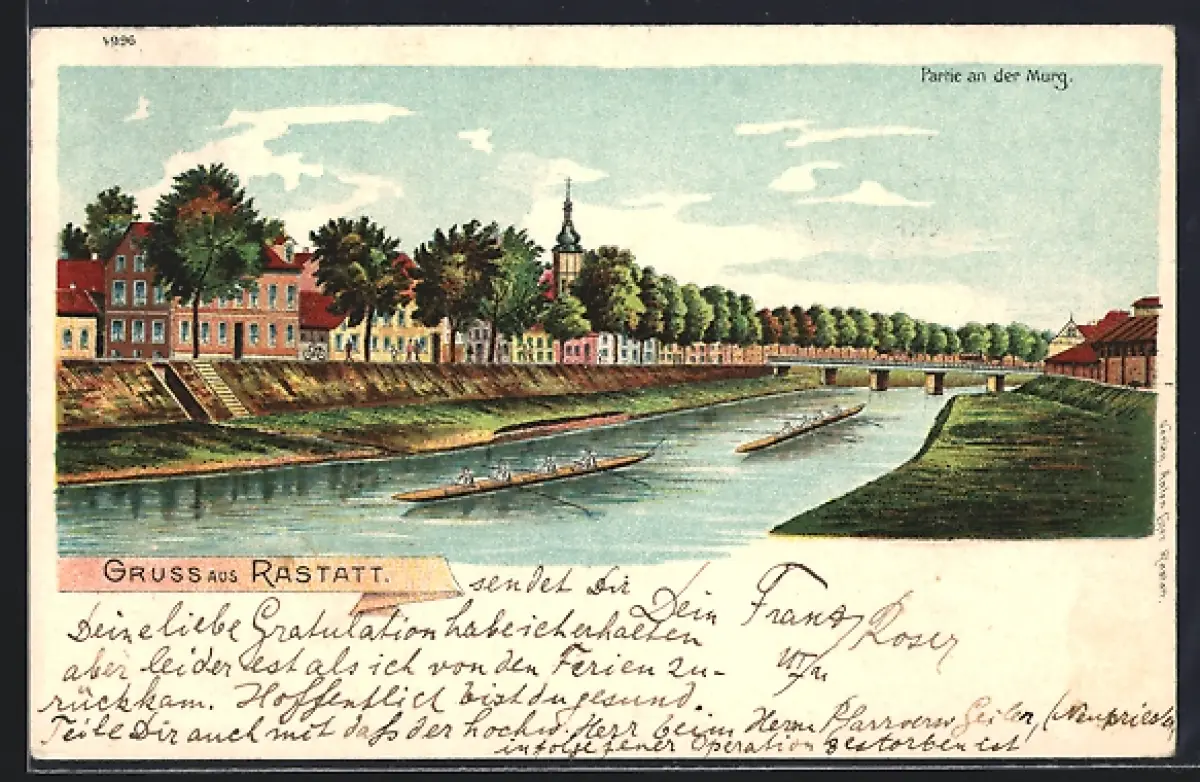 1996
Partie an der Murg.
GRUSS AUS RASTATT.
sendet Dir
Dein Franz Roser
Deine liebe Gratulation habe ich erhalten
aber leider erst als ich von den Ferien zu-
rückkam. Hoffentlich bist du gesund.
Teile Dir auch mit daß der hochw. Herr beim Herrn Pfarrverw. Geiler, (Neupriester,
infolge jener Operation gestorben ist
Verlag